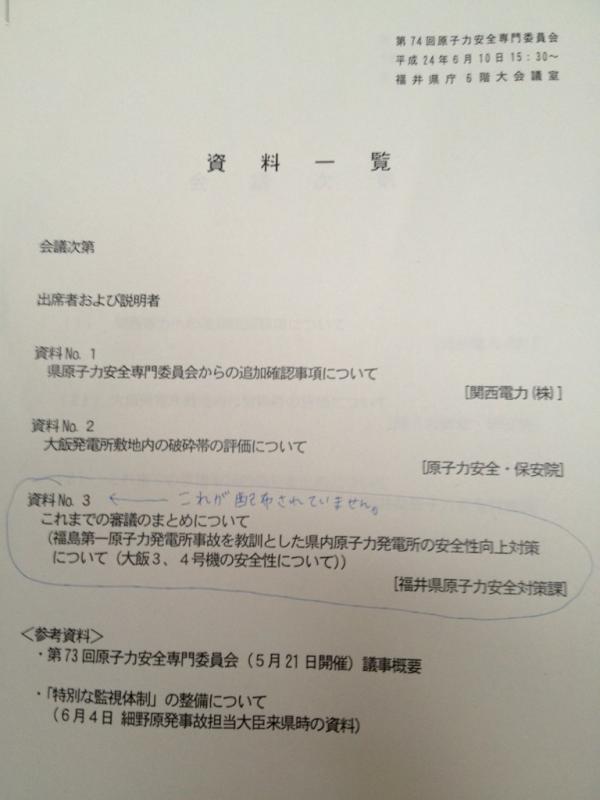 第74回原子力安全専門委員会
平成24年6月10日15:30~
福井県庁6階大会議室
資料一覧
会議次第
出席者および説明者
資料No.1
県原子力安全専門委員会からの追加確認事項について
[関西電力(株)]
資料No.2
大飯発電所敷地内の破砕帯の評価について
[原子力安全・保安院]
資料No.3 ← これが配布されていません。
これまでの審議のまとめについて
(福島第一原子力発電所事故を教訓とした県内原子力発電所の安全性向上対策
について(大飯3、4号機の安全性について))
[福井県原子力安全対策課]
<参考資料>
・第73回原子力安全専門委員会(5月21日開催)議事概要
・「特別な監視体制」の整備について
(6月4日 細野原発事故担当大臣来県時の資料)